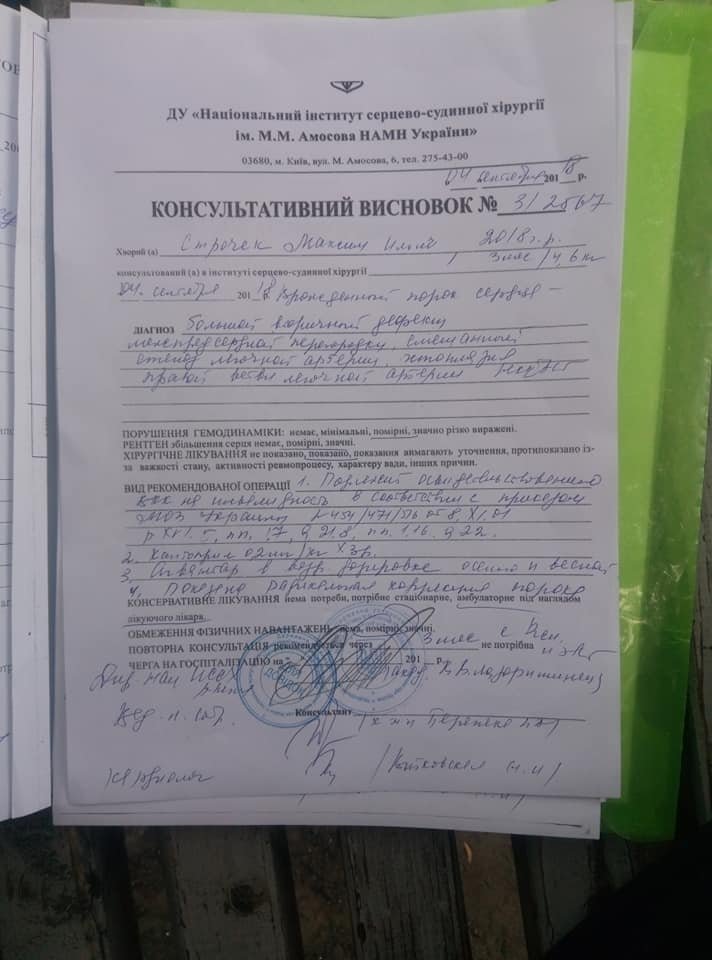 ДУ «Національний інститут серцево-судинної хірургії
ім. М.М. Амосова НАМН України»
03680, м. Київ, вул. М. Амосова, 6, тел. 275-43-00
04 сентября 2018 р.
КОНСУЛЬТАТИВНИЙ ВИСНОВОК № 3/2567
Хворий (а) Строчек Максим 2018 г.р.
3 мес / 4,6 кг
консультований (а) в інституті серцево-судинної хірургії
04 сентября 2018 Врожденный порок сердца –
ДІАГНОЗ большой вторичный дефект
межпредсердной перегородки, смешанный
стеноз легочной артерии, гипоплазия
правой ветви легочной артерии
ПОРУШЕННЯ ГЕМОДИНАМІКИ: немає, мінімальні, помірні, значно різко виражені.
РЕНТГЕН збільшення серця немає, помірні, значні.
ХІРУРГІЧНЕ ЛІКУВАННЯ не показано, показано, показання вимагають уточнення, протипоказано із-
за важкості стану, активності ревмопроцесу, характеру вади, інших причин.
ВИД РЕКОМЕНДОВАНОЇ ОПЕРАЦІЇ 1. Подлежит освидетельствованию
на инвалидность в соответствии с приказом
МОЗ Украины № 454/471/516 от 8.XI.01
2. Каптоприл 0,2 мг/кг х 3 р.
3. в возр. дозировке осенью и весной
4. Показана радикальная коррекция порока
КОНСЕРВАТИВНЕ ЛІКУВАННЯ нема потреби, потрібне стаціонарне, амбулаторне під наглядом
лікуючого лікаря.
ОБМЕЖЕННЯ ФІЗИЧНИХ НАВАНТАЖЕНЬ нема, помірні, значні.
ПОВТОРНА КОНСУЛЬТАЦІЯ рекомендується через 3 мес с не потрібна
ЧЕРГА НА ГОСПІТАЛІЗАЦІЮ на 201 р.
Консультант